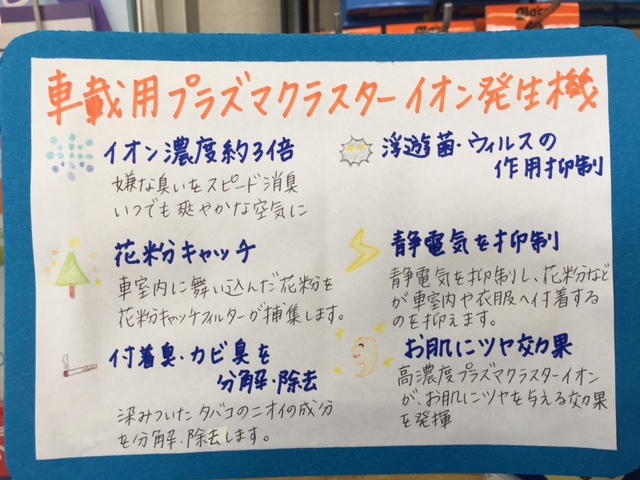 車載用プラズマクラスターイオン発生機
イオン濃度約3倍
嫌な臭いをスピード消臭
いつでも爽やかな空気に
浮遊菌・ウィルスの
作用抑制
花粉キャッチ
車室内に舞い込んだ花粉を
花粉キャッチフィルターが捕集します。
静電気を抑制
静電気を抑制し、花粉などが
車室内や衣服へ付着する
のを抑えます。
付着臭・カビ臭を
分解・除去
染みついたタバコのニオイの成分
を分解・除去します。
お肌にツヤ効果
高濃度プラズマクラスターイオン
が、お肌にツヤを与える効果
を発揮